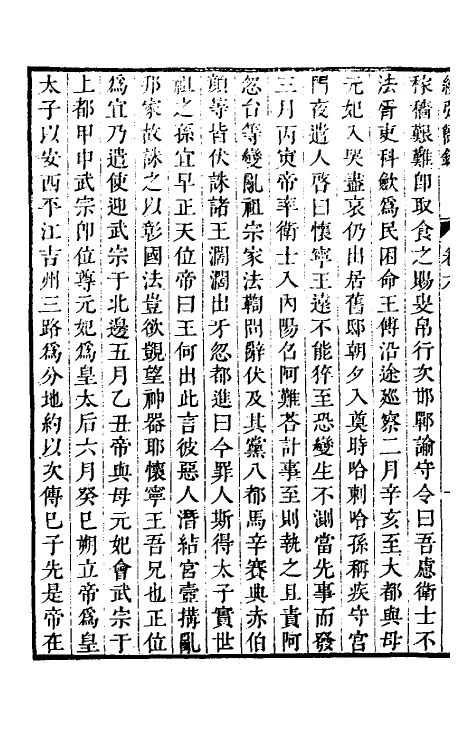 續弘簡錄 卷六
稼穡艱難卽取食之賜叟帛行次邯鄲諭守令曰吾慮衛士不
法胥吏科歛爲民困命王傅沿途廵察二月辛亥至大都與母
元妃入哭盡哀仍出居舊邸朝夕入奠時哈剌哈孫稱疾守宮
門夜遣人啓曰懷寧王遠不能猝至恐變生不測當先事而發
三月丙寅帝率衛士入內陽召阿難荅計事至則執之且責阿
忽台等變亂祖宗家法鞫問辭伏及其黨八都馬辛賽典赤伯
顏等皆伏誅諸王濶濶出牙忽都進曰今罪人斯得太子實世
祖之孫宜早正天位帝曰王何出此言彼惡人潛結宮壼搆亂
邦家故誅之以彰國法豈欲覬望神器耶懷寧王吾兄也正位
爲宜乃遣使迎武宗于北邊五月乙丑帝與母元妃會武宗于
上都甲申武宗卽位尊元妃爲皇太后六月癸巳朔立帝爲皇
太子以安西平江吉州三路爲分地約以次傳已子先是帝在